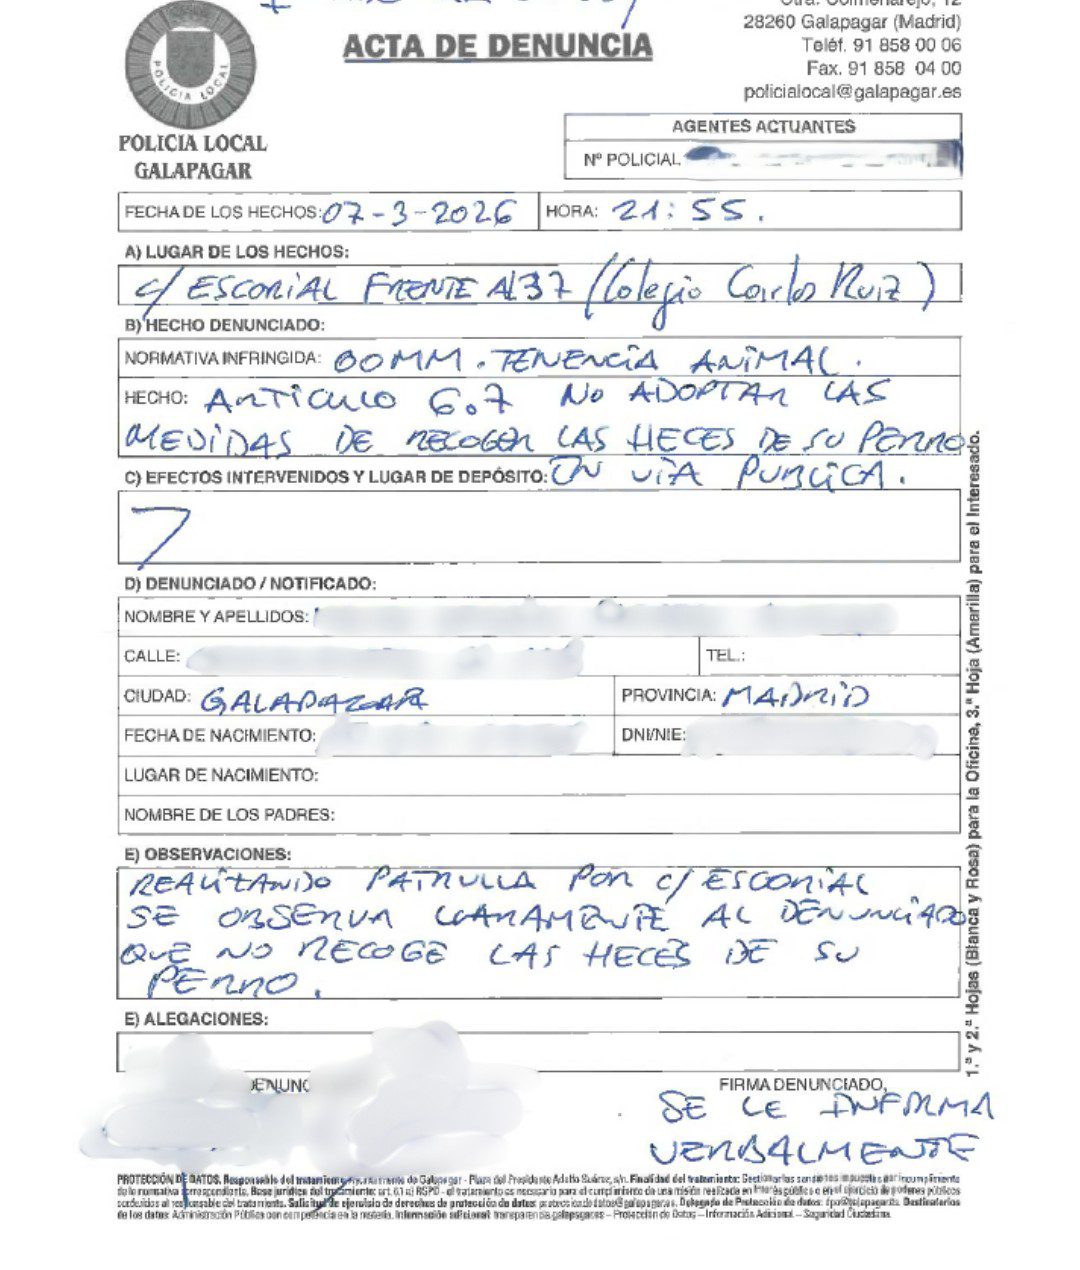 Ctra. Colmenarejo, 12
28260 Galapagar (Madrid)
Teléf. 91 858 00 06
Fax. 91 858 04 00
policialocal@galapagar.es
ACTA DE DENUNCIA
POLICIA LOCAL
POLICIA LOCAL
GALAPAGAR
AGENTES ACTUANTES
Nº POLICIAL
FECHA DE LOS HECHOS: 07-3-2026 HORA: 21:55.
A) LUGAR DE LOS HECHOS:
c/ ESCORIAL FRENTE Al 37 (Colegio Carlos Ruiz)
B) HECHO DENUNCIADO:
NORMATIVA INFRINGIDA: OOMM. TENENCIA ANIMAL.
HECHO: ARTICULO 6.7 NO ADOPTAR LAS
MEDIDAS DE RECOGER LAS HECES DE SU PERRO
EN VIA PUBLICA.
C) EFECTOS INTERVENIDOS Y LUGAR DE DEPÓSITO:
D) DENUNCIADO / NOTIFICADO:
NOMBRE Y APELLIDOS:
CALLE: TEL.:
CIUDAD: GALAPAGAR PROVINCIA: MADRID
FECHA DE NACIMIENTO: DNI/NIE:
LUGAR DE NACIMIENTO:
NOMBRE DE LOS PADRES:
E) OBSERVACIONES:
REALIZANDO PATRULLA POR C/ ESCORIAL
SE OBSERVA CLARAMENTE AL DENUNCIADO
QUE NO RECOGE LAS HECES DE SU
PERRO.
E) ALEGACIONES:
FIRMA DENUNCIADO,
SE LE INFORMA
VERBALMENTE
1.ª y 2.ª Hojas (Blanca y Rosa) para la Oficina, 3.ª Hoja (Amarilla) para el Interesado.
PROTECCIÓN DE DATOS. Responsable del tratamiento: Ayuntamiento de Galapagar - Plaza del Presidente Adolfo Suárez, s/n. Finalidad del tratamiento: Gestionar las sanciones impuestas por incumplimiento
de la normativa correspondiente. Base jurídica del tratamiento: art. 6.1 e) RGPD - el tratamiento es necesario para el cumplimiento de una misión realizada en interés público o en el ejercicio de poderes públicos
conferidos al responsable del tratamiento. Solicitud de ejercicio de derechos de protección de datos: Delegado de Protección de datos: Destinatarios
de los datos: Administración Pública con competencia en la materia. Información adicional: – Protección de Datos – Información Adicional – Seguridad Ciudadana